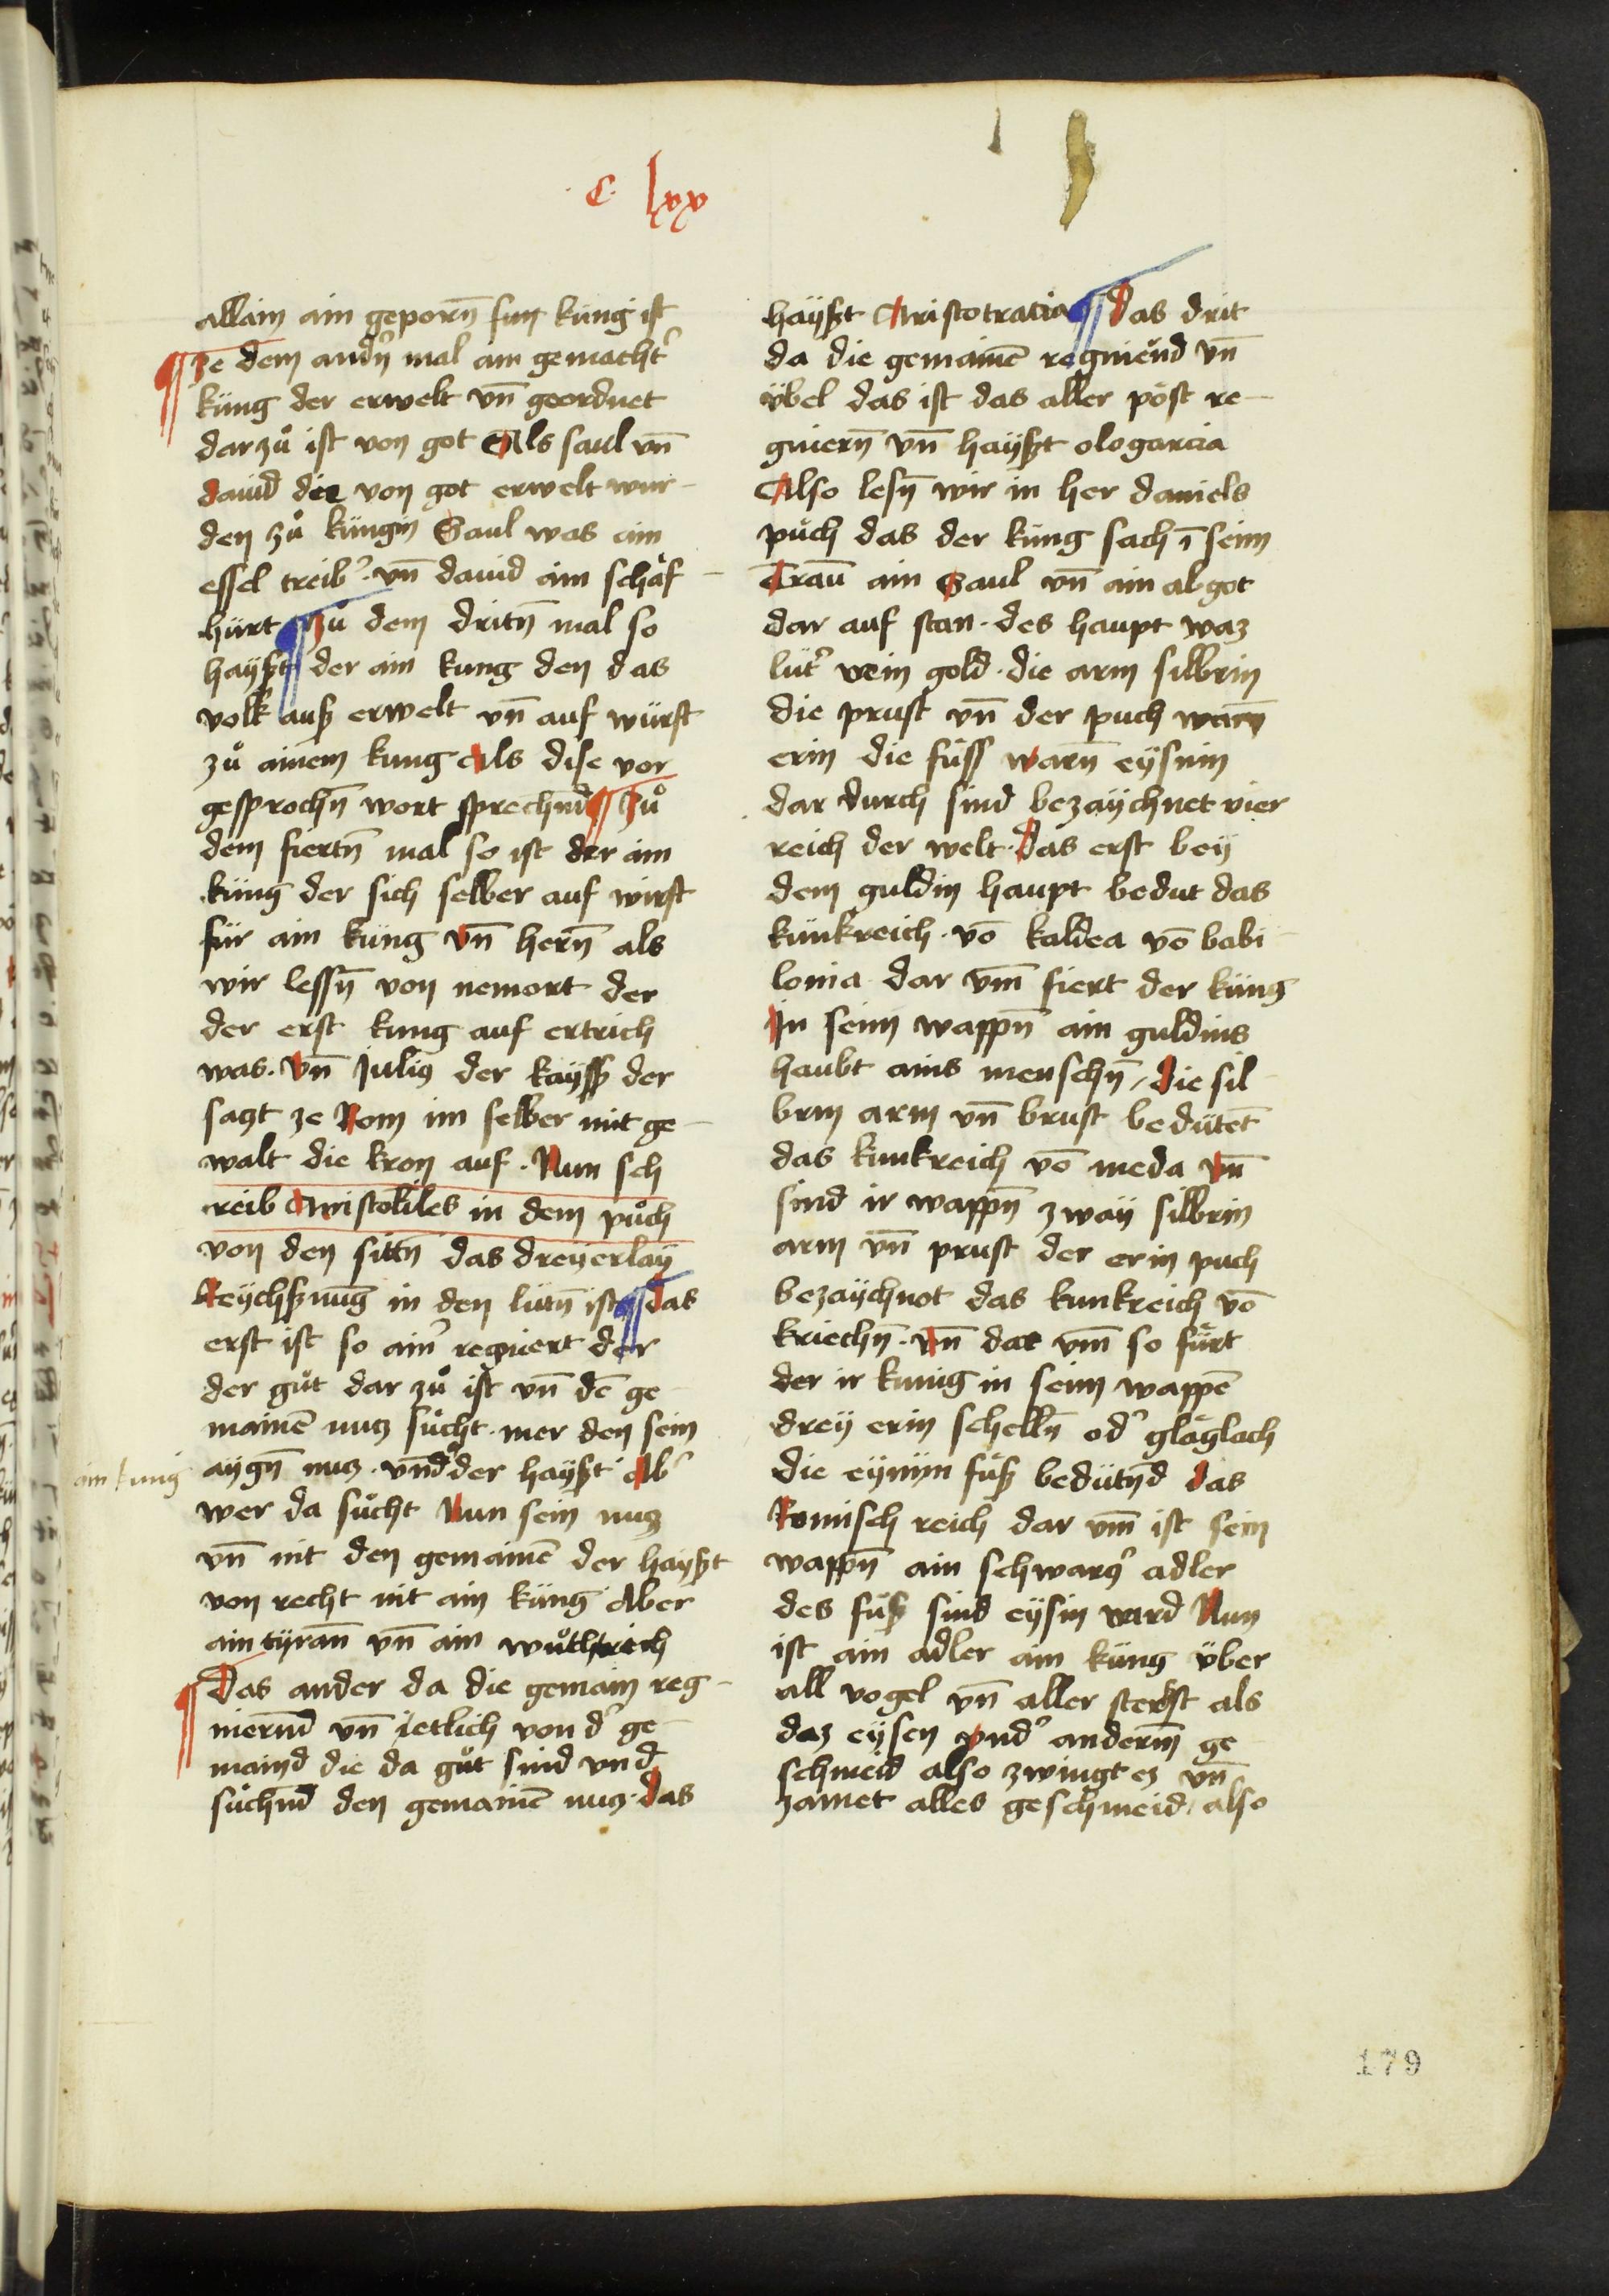 C lxx
allain ain geporn̄ sun küng ist
¶ ze dem andn̄ mal ain gemacht͛
küng der erwelt vn̄ geordnet
darzů ist von got Als saul vn̄
dauid die von got erwelt wur-
den zů küngin Saul was ain
essel treib͛ · vn̄ dauid ain schaf-
hürt ¶ Zů dem dritn̄ mal so
hayßt der ain kung den das
volk auß erwelt vn̄ auf würft
zů ainem kung Als dise vor
gesprochn̄ wort sprechnd ¶ Zů
dem fiertn̄ mal so ist der ain
küng der sich selber auf wirft
für ain küng vn̄ hern̄ als
wir lessn̄ von nemort der
der erst kung auf ertrich
was · vn̄ Julius der kayß der
sagt ze Rom im selber mit ge-
walt die kron auf · Nun sch
reib Aristotiles in dem půch
von den sittn̄ das dreyerlay
Reychßnung in den lütn̄ ist ¶ das
erst ist so ain͛ regniert der
der gůt dar zů ist vn̄ dē ge
mainē nuz sůcht · mer den sein
aygn̄ nuz · vnd der hayßt Ab͛
ain kung
wer da sůcht Nun sein nuz
vn̄ nit den gemainē der hayßt
von recht nit ain küng Aber
ain tyran̄ vn̄ ain wůthrich
¶ Das ander da die gemain reg-
niernd vn̄ ietlich von d͛ ge-
maind die da gůt sind vnd
sůchnd den gemainē nuz · das
hayßt Aristotratia ¶ Das drit
da die gemainē regniend vn̄
übel das ist das aller pöst re-
gniern̄ vn̄ hayßt ologarcia
Also lesn̄ wir in her daniels
půch das der küng sach ī seim
Traū ain Saul vn̄ ain abgot
dar auf stan · des haupt waz
lüt͛ vein gold · die arm silbrin
die prust vn̄ der puch warn̄
erin die füss warn̄ eysnin
dar durch sind bezaychnet vier
reich der welt · Das erst bey
dem guldin haupt bedut das
künkreich · vō kaldea vō babi-
lonia dar vm̄ fiert der küng
In seim wappn̄ ain guldins
haubt ains menschn̄ / die sil-
brin arm vn̄ brust bedütet̄
das kunkreich vō meda vn̄
sind ir wappn̄ zway silbrin
arm vn̄ prust der erin puch
bezaychnot das kunkreich vō
kriechn̄ · vn̄ dar vm̄ so fürt
der ir kunig in seim wappē
drey erin schelln̄ od͛ glaglach
die eynyn füß bedütnd das
Romisch reich dar vm̄ ist sein
wappn̄ ain schwarz͛ adler
des füß sind eysin ward Nun
ist ain adler ain küng über
all vogel vn̄ aller sterkst als
daz eysen vnd͛ anderm̄ ge
schmeid also zwingt ez vn̄
zamet alles geschmeid / also
179